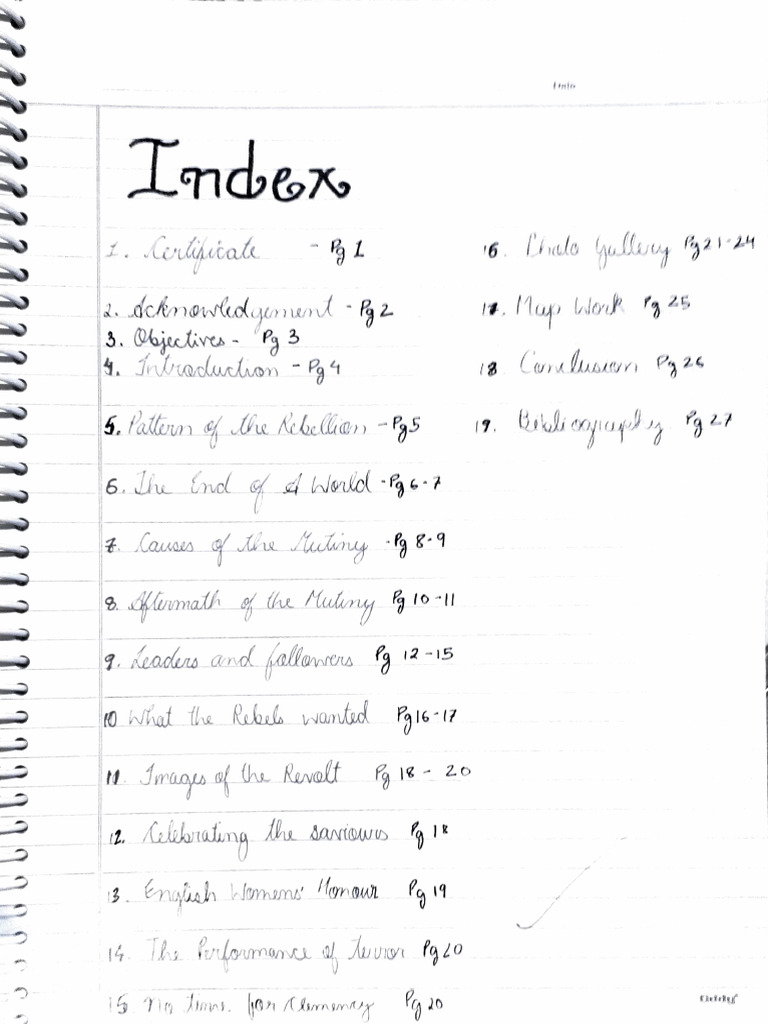 Index
1. Certificate - Pg 1
2. Acknowledgement - Pg 2
3. Objectives - Pg 3
4. Introduction - Pg 4
5. Pattern of the Rebellion - Pg 5
6. The End of A World - Pg 6-7
7. Causes of the Mutiny - Pg 8-9
8. Aftermath of the Mutiny Pg 10-11
9. Leaders and followers Pg 12-15
10 What the Rebels wanted Pg 16-17
11. Images of the Revolt Pg 18-20
12. Celebrating the saviours Pg 18
13. English Womens' Honour Pg 19
14. The Performance of terror Pg 20
15. No time for Clemency Pg 20
16. Photo Gallery Pg 21-24
17. Map Work Pg 25
18 Conclusion Pg 26
19. Bibliography Pg 27